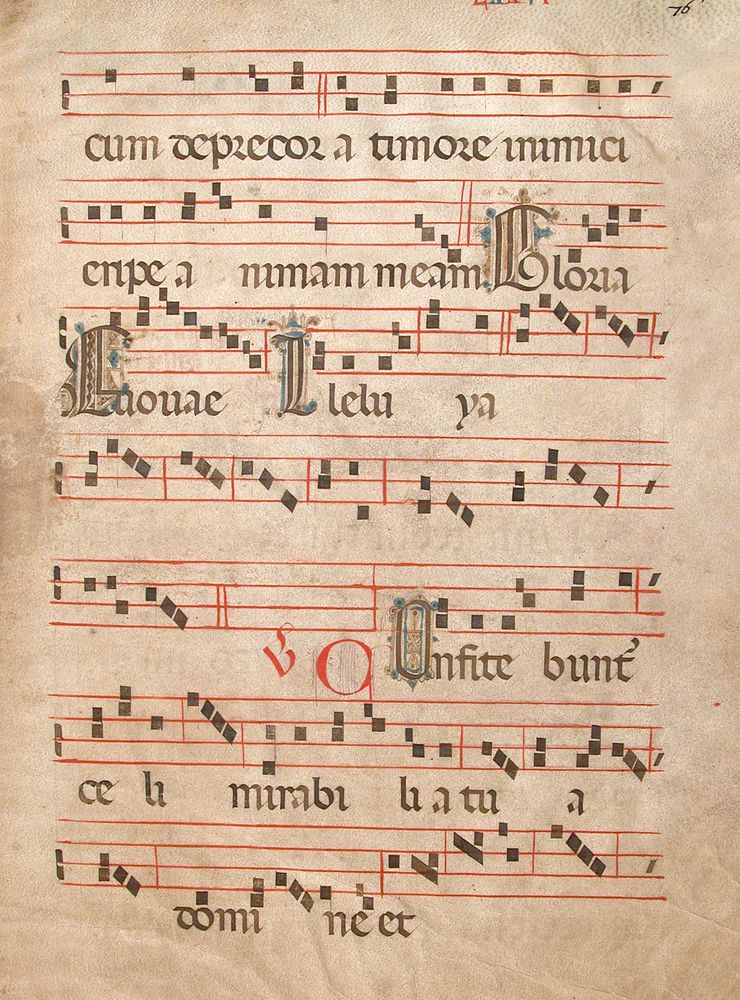 76
cum deprecor a timore inimici
eripe a nimam meam Gloria
Euouae Al lelu ya
℣ Confite bunt᷒
ce li mirabi li a tu a
domi ne et